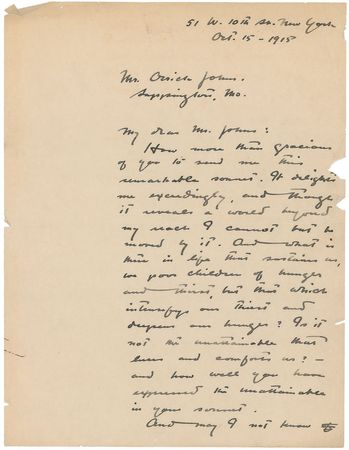 51 W. 10th St. New York
Oct. 15 - 1915
Mr. Orrick Johns.
Sappington, Mo.
My dear Mr. Johns:
How more than gracious
of you to send me this
remarkable sonnet. It delights
me exceedingly, and though
it reveals a world beyond
my reach I cannot but be
moved by it. And what is
there in life that sustains us,
we poor children of hunger
and thirst, but that which
intensifys our thirst and
deepens our hunger? Is it
not the unattainable that
lures and comforts us? -
and how well you have
expressed the unattainable
in your sonnet.
And may I not know